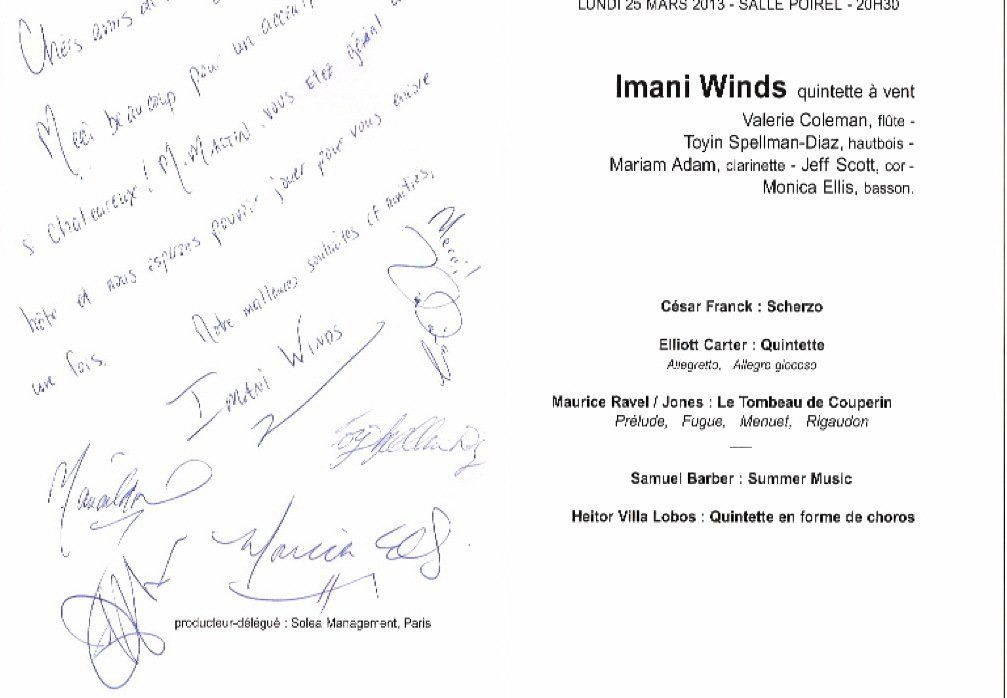 Chers amis de
Merci beaucoup pour un
si chaleureux! M. MARTIN vous etez génial
hôte et nous espérons pouvoir jouer pour vous encore
une fois.
Notre meilleures souhaites et amities,
IMANI WINDS
Merci!
producteur-délégué : Solea Management, Paris
LUNDI 25 MARS 2013 - SALLE POIREL - 20H30
Imani Winds quintette à vent
Valerie Coleman, flûte -
Toyin Spellman-Diaz, hautbois -
Mariam Adam, clarinette - Jeff Scott, cor -
Monica Ellis, basson.
César Franck : Scherzo
Elliott Carter : Quintette
Allegretto, Allegro giocoso
Maurice Ravel / Jones : Le Tombeau de Couperin
Prélude, Fugue, Menuet, Rigaudon
Samuel Barber : Summer Music
Heitor Villa Lobos : Quintette en forme de choros